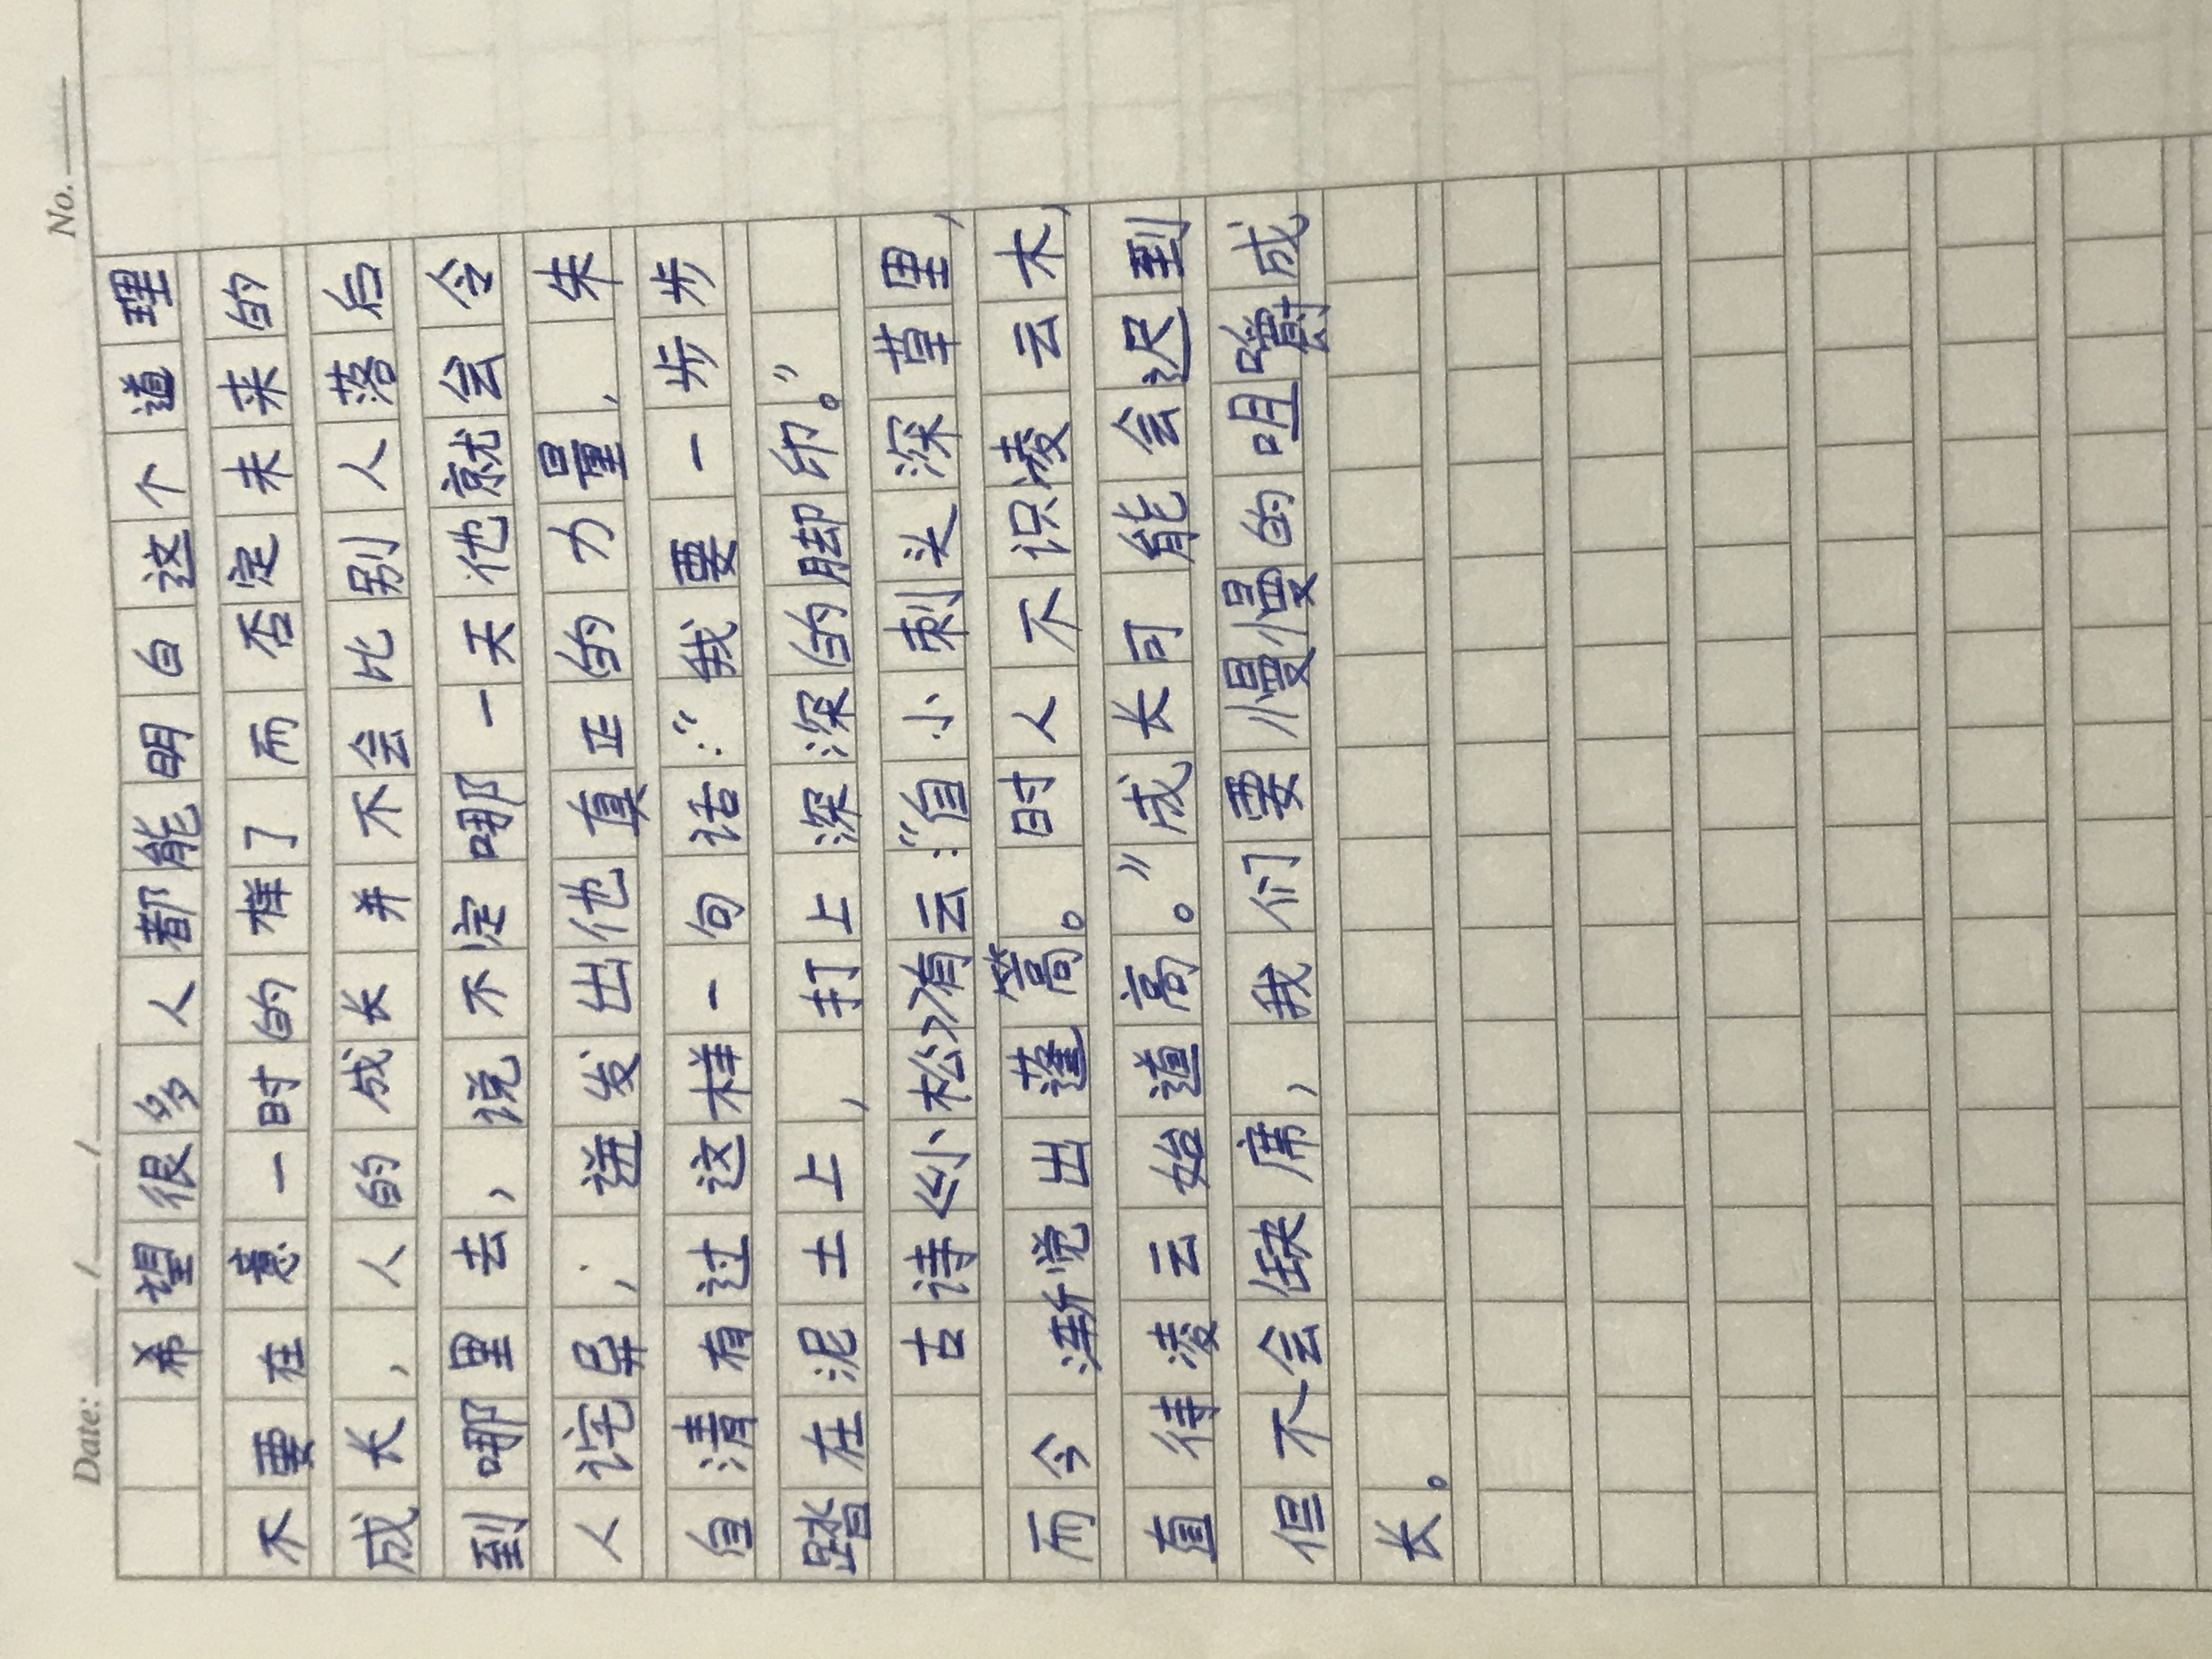 No.
Date: / /
希望很多人都能明白这个道理
不要在意一时的样了而否定未来的
成长，人的成长并不会比别人落后
到哪里去，说不定哪一天他就会令
人诧异，迸发出他真正的力量，朱
自清有过这样一句话：“我要一步步
踏在泥土上，打上深深的脚印。”
古诗《小松》有云：“自小刺头深草里，
而今渐觉出蓬篙。时人不识凌云木，
直待凌云始道高。”成长可能会迟到
但不会缺席，我们要慢慢的咀嚼成
长。